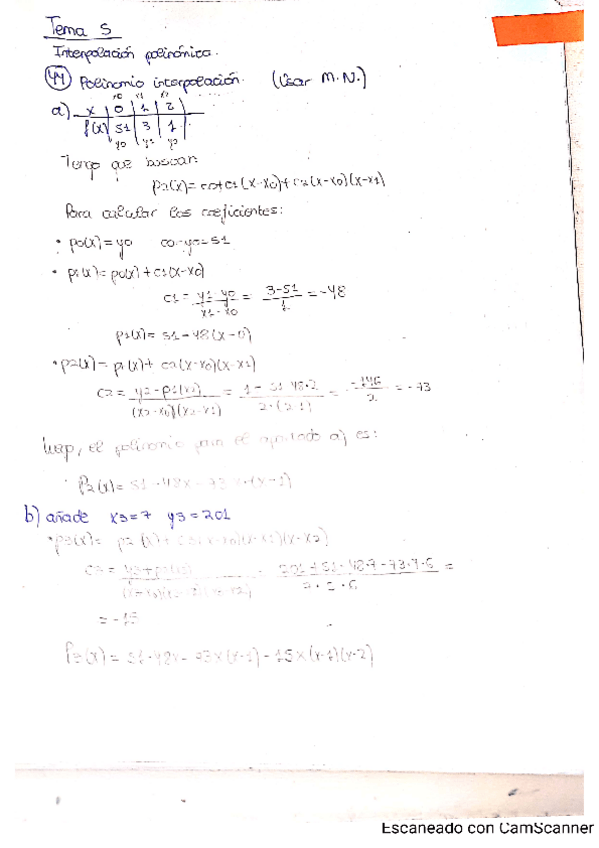 Tema 5
Interpolación polinómica.
44 Polinomio interpolación. (Usar M.N.)
x0 x1 x2
a) x | 0 | 1 | 2 |
f(x) | 51 | 3 | 1 |
y0 y1 y2
Tengo que buscar:
p2(x)=c0+c1(x-x0)+c2(x-x0)(x-x1)
Para calcular los coeficientes:
• p0(x)=y0 c0=y0=51
• p1(x)=p0(x)+c1(x-x0)
c1 = y1-y0 / x1-x0 = 3-51 / 1 = -48
p1(x)= 51-48(x-0)
• p2(x)= p1(x)+ c2(x-x0)(x-x1)
c2 = y2-p1(x2) / (x2-x0)(x2-x1) = 1-51 48·2 / 2·(2-1) = -146 / 2 = -73
luego, el polinomio para el apartado a) es:
P2(x)= 51-48x-73x(x-1)
b) añade x3=7 y3=201
• p3(x)= p2(x)+c3(x-x0)(x-x1)(x-x2)
201+51-48·7-73·7·6 =
= -15
P3(x)= 51-48x-73x(x-1)-15x(x-1)(x-2)
Escaneado con CamScanner